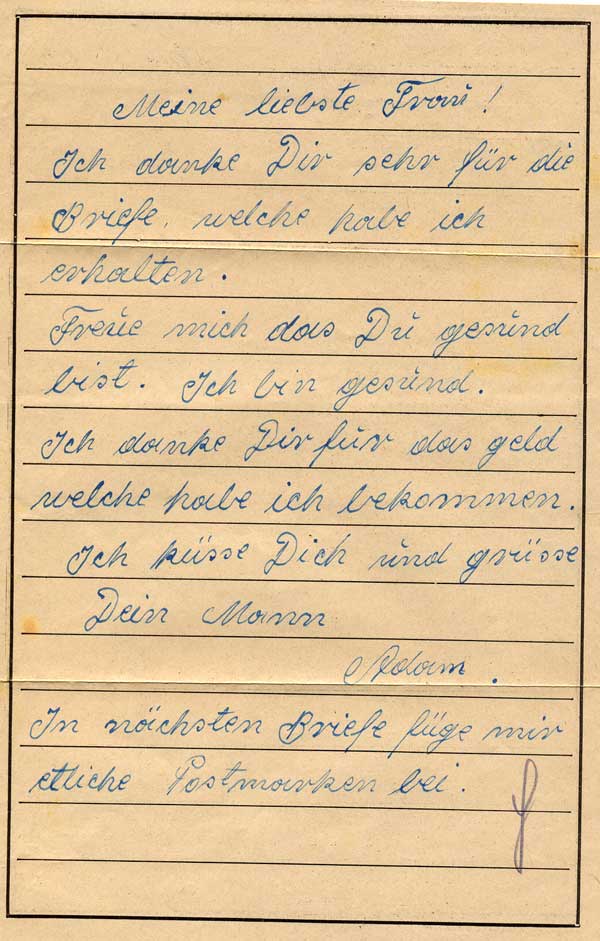 Meine liebste Frau!
Ich danke Dir sehr für die
Briefe, welche habe ich
erhalten.
Freue mich das Du gesund
bist. Ich bin gesund.
Ich danke Dir für das geld
welche habe ich bekommen.
Ich küsse Dich und grüsse
Dein Mann
Adam.
In nächsten Briefe füge mir
etliche Postmarken bei.